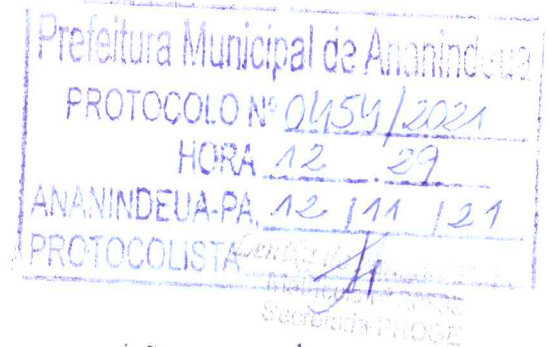 Prefeitura Municipal de Ananindeua
PROTOCOLO Nº 0454/2021
HORA 12 29
ANANINDEUA-PA, 12 / 11 / 21
PROTOCOLISTA
Secretaria PROGE